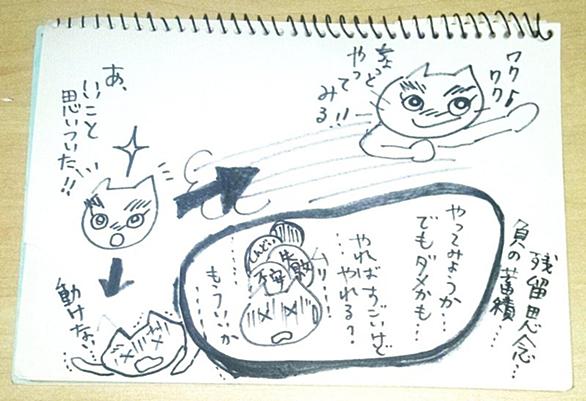 あ、
いいこと
思いついた!!
ワク♪
ワク
ちょっと
やって
みる!!
動けない
残留思念…
負の蓄積…
やってみようか…
でもダメかも…
やればすごいけど
やれる?
ムリ!
しんどい
不安
もういいか